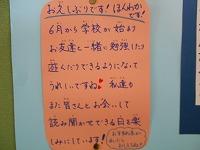 おえしぶりです!ほんわかです!
6月から学校が始まり
お友達と一緒に勉強したり
遊んだりできるようになって
うれしいですね 私達も
また皆さんとお会いして
読み聞かせできる日を楽
しみにしています!